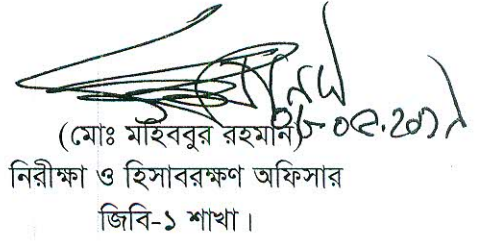 (মোঃ মহিববুর রহমান)
নিরীক্ষা ও হিসাবরক্ষণ অফিসার
জিবি-১ শাখা।